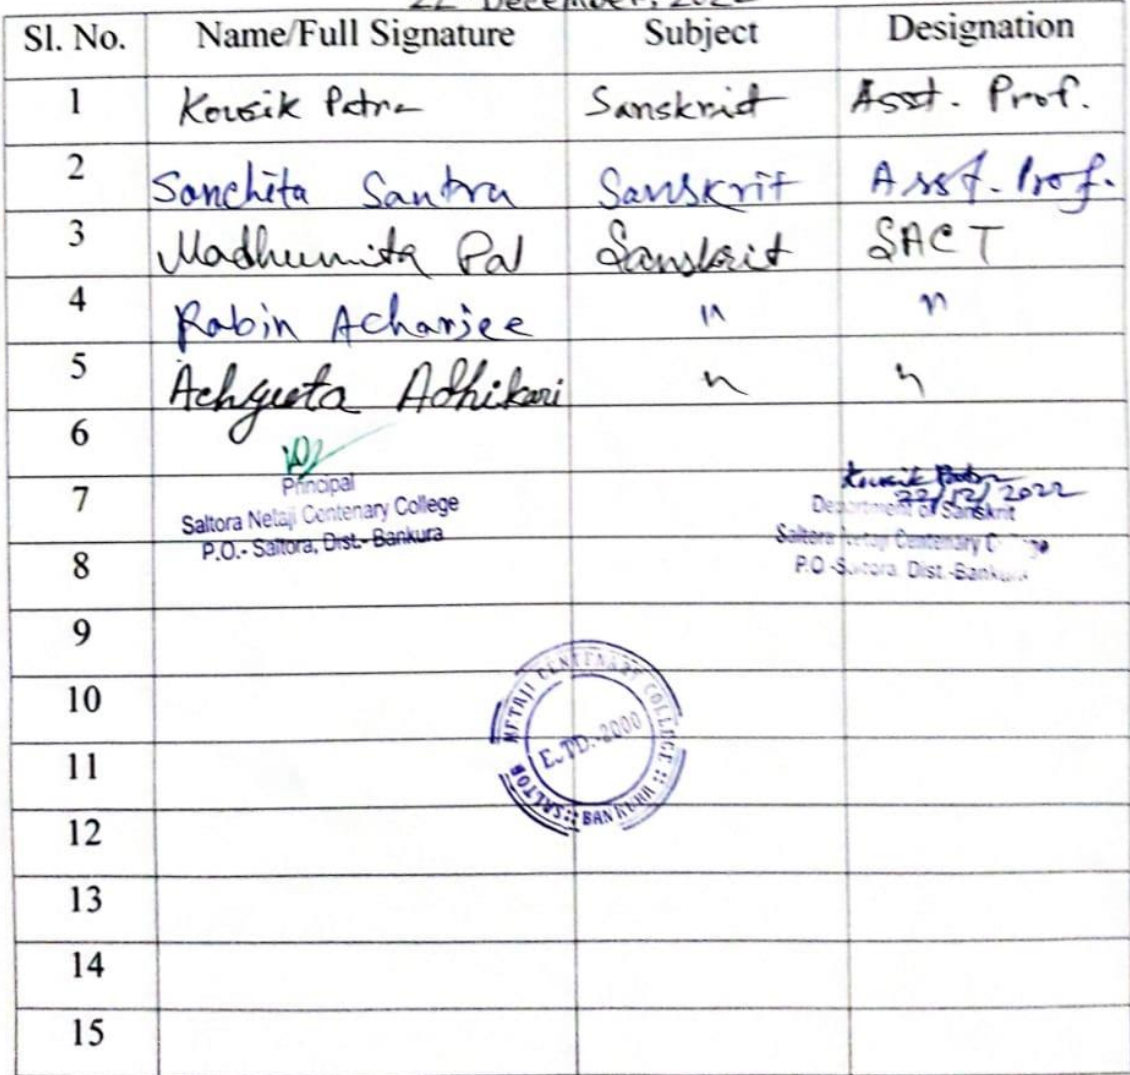 22 December, 2022
Sl. No. Name/Full Signature Subject Designation
1 Kousik Patra Sanskrit Asst. Prof.
2 Sanchita Santra Sanskrit Asst. Prof.
3 Madhumita Pal Sanskrit SACT
4 Rabin Acharjee " "
5 Achyuta Adhikari " "
6
7
Principal
Saltora Netaji Centenary College
P.O.- Saltora, Dist.- Bankura
Kousik Patra
22/12/2022
Department of Sanskrit
Saltora Netaji Centenary College
P.O -Saltora, Dist.-Bankura
8
9
10
NETAJI CENTENARY COLLEGE :: BANKURA :: SALTORA
ESTD.-2000
11
12
13
14
15